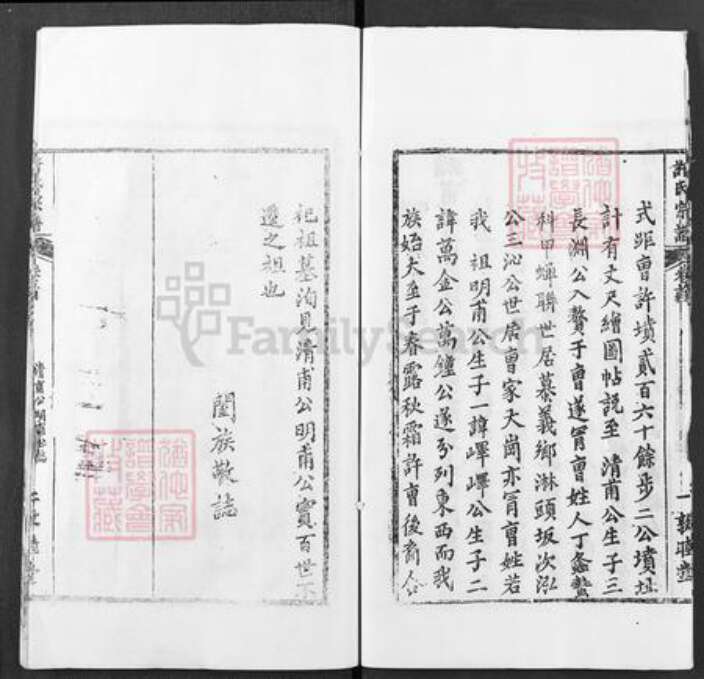 許氏宗譜
式距曹許墳貳百六十餘步二公墳址
計有丈尺繪圖帖説至 清甫公生子三
長淵公入贅于曹遂冐曹姓人丁螽蟄
科甲蟬聯世居慕義鄉淋頭坂次泓
公三沁公世居曹家大崗亦冐曹姓若
我 祖明甫公生子一諱嶧嶧公生子二
諱萬金公萬鐘公遂分列東西而我
族始大至于春露秋霜許曹後裔合
祀祖墓洵見清甫公明甫公實百世不
遷之祖也
闔族敬誌
FamilySearch